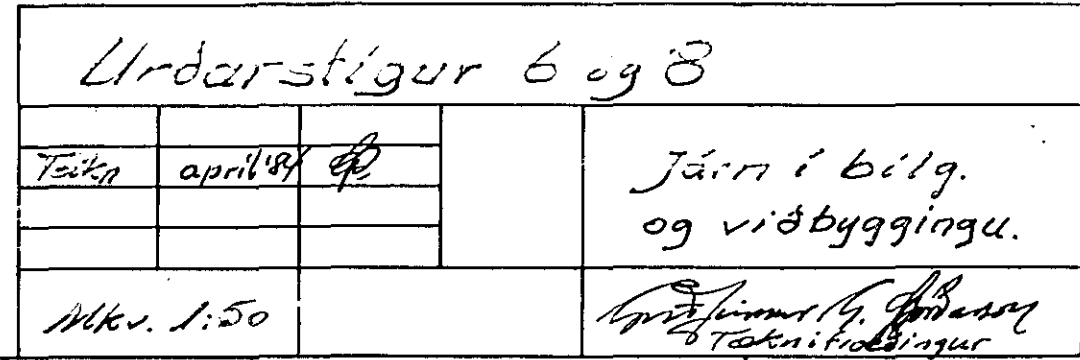 Urðarstígur 6 og 8
Teikn apríl '84
Járn í bílg.
og viðbyggingu.
Mkv. 1:50
Tæknifræðingur